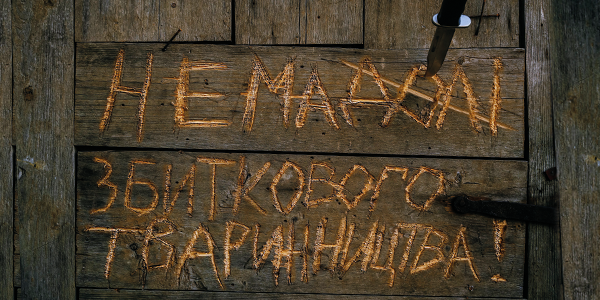 НЕМА ДОЛІ
ЗБИТКОВОГО
ТВАРИННИЦТВА!